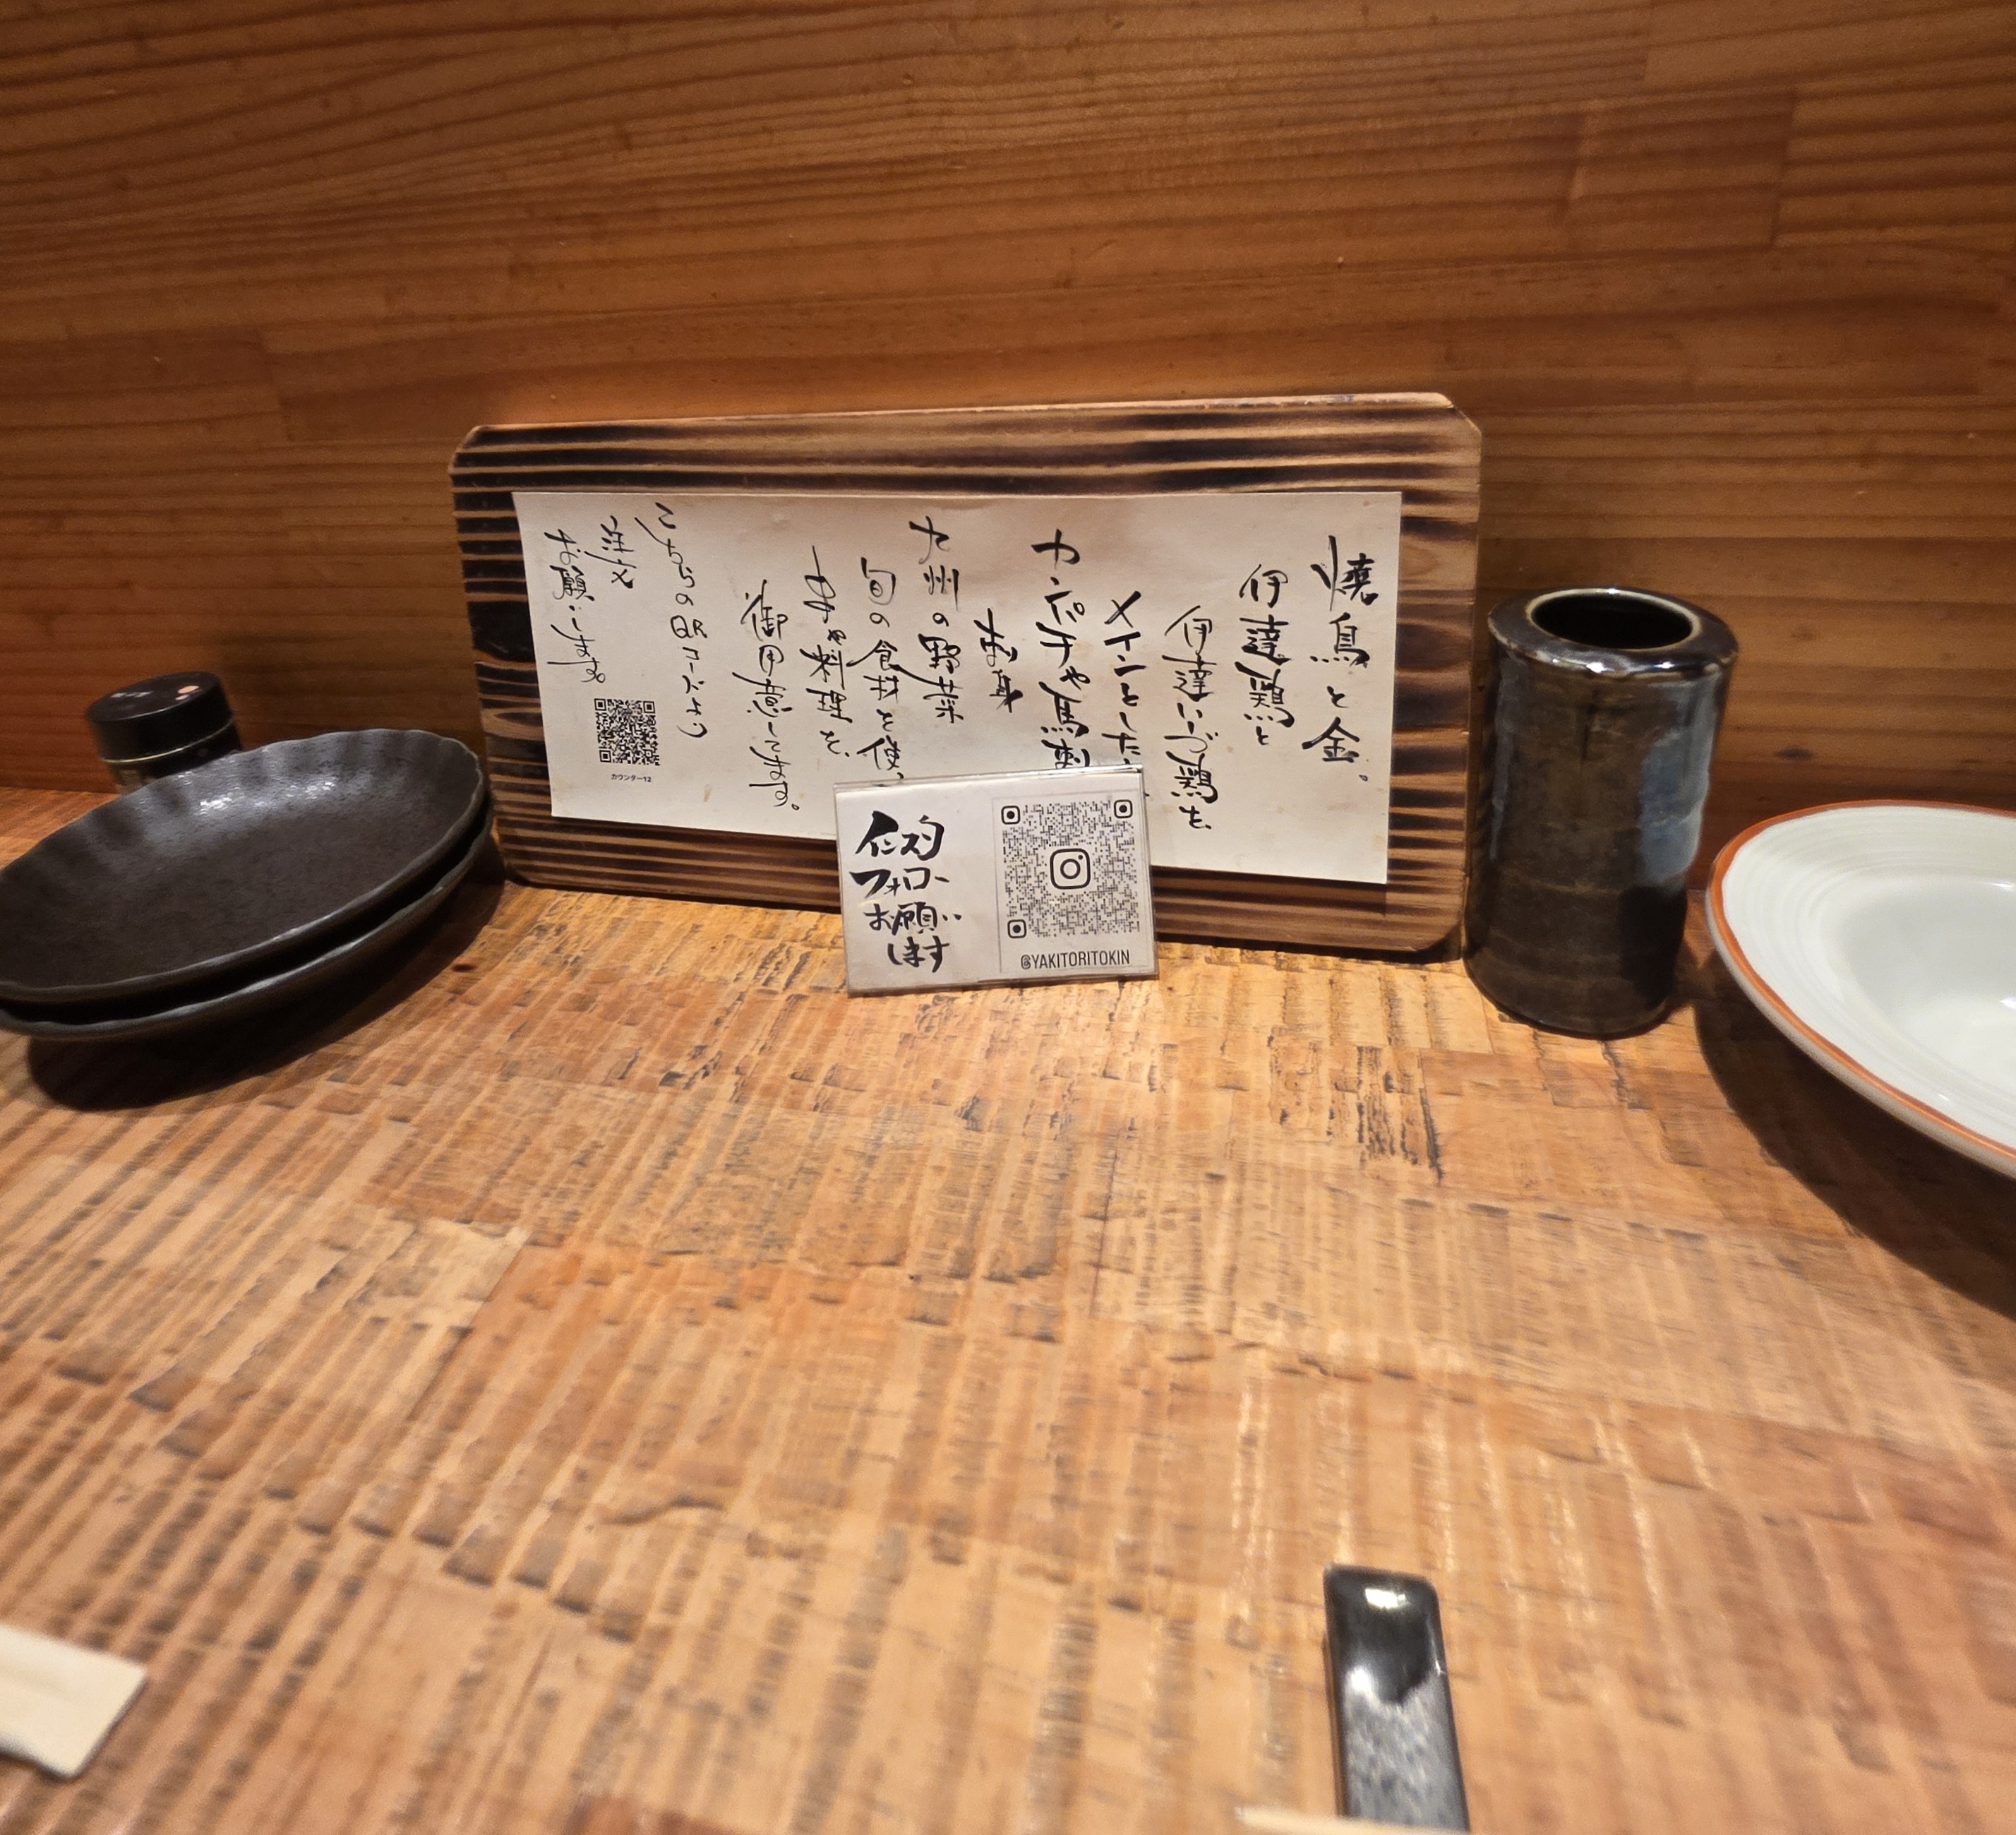 焼鳥と金。
伊達鶏と
伊達いぶ鶏を
メインとした
カンパチや馬刺
お刺身
九州の野菜
旬の食材を使
料理を
御用意してます。
こちらのQRコードより
注文
お願いします。
カウンター12
インスタ
フォロー
お願い
します
@YAKITORITOKIN